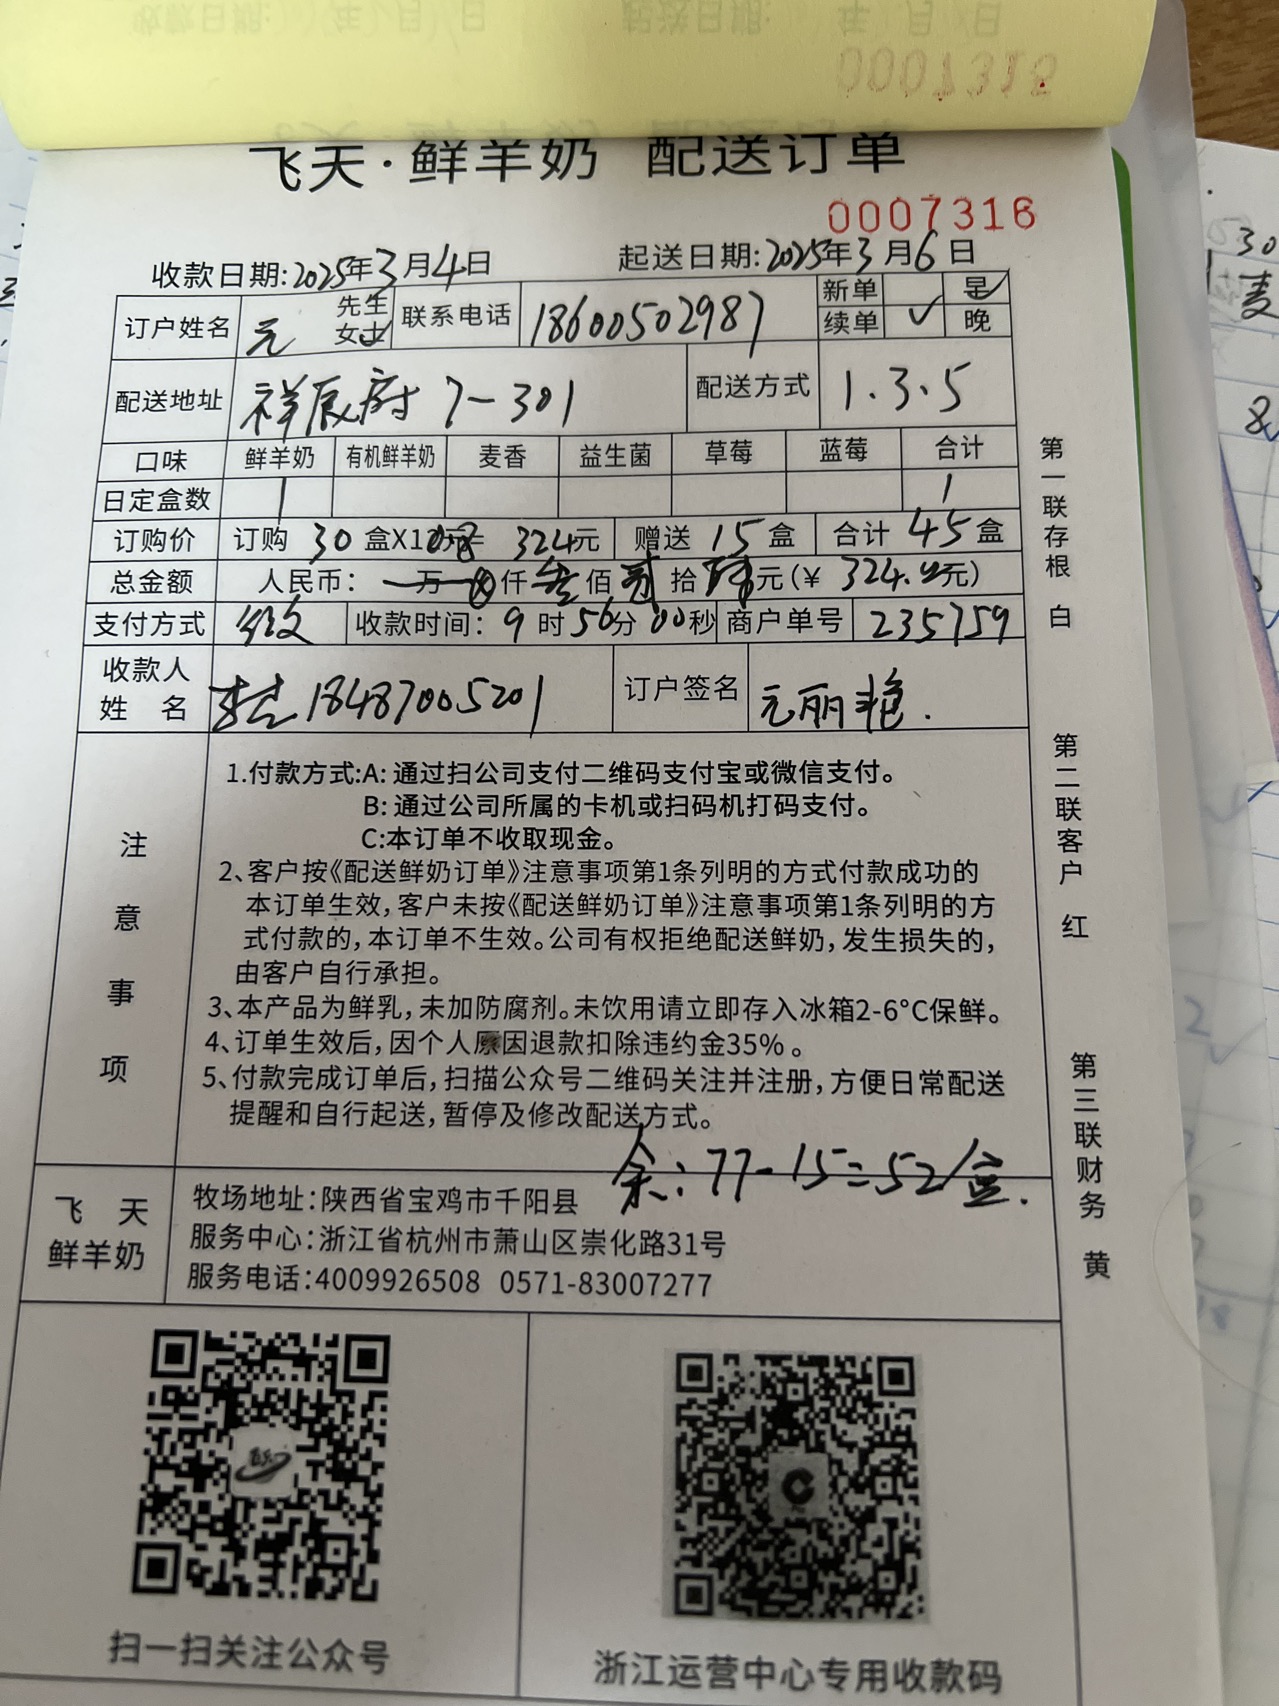 飞天·鲜羊奶 配送订单
0007316
收款日期:2025年3月4日 起送日期:2025年3月6日
订户姓名 元 先生 女士 联系电话 18600502987 新单 早
续单 ✓ 晚
配送地址 祥辰府 7-301 配送方式 1.3.5
口味 鲜羊奶 有机鲜羊奶 麦香 益生菌 草莓 蓝莓 合计
日定盒数 1 1
订购价 订购 30 盒X10.8= 324元 赠送 15 盒 合计 45 盒
总金额 人民币: 万 仟 叁 佰 贰 拾 肆 元(¥ 324.元)
支付方式 收款时间: 9 时 56分 00秒 商户单号 235759
收款人
姓 名 18487005201 订户签名 元丽艳.
注意事项
1.付款方式:A: 通过扫公司支付二维码支付宝或微信支付。
B: 通过公司所属的卡机或扫码机打码支付。
C:本订单不收取现金。
2、客户按《配送鲜奶订单》注意事项第1条列明的方式付款成功的
本订单生效,客户未按《配送鲜奶订单》注意事项第1条列明的方
式付款的,本订单不生效。公司有权拒绝配送鲜奶,发生损失的,
由客户自行承担。
3、本产品为鲜乳,未加防腐剂。未饮用请立即存入冰箱2-6°C保鲜。
4、订单生效后,因个人原因退款扣除违约金35%。
5、付款完成订单后,扫描公众号二维码关注并注册,方便日常配送
提醒和自行起送,暂停及修改配送方式。
余:77-15=52/盒.
飞 天
鲜羊奶
牧场地址:陕西省宝鸡市千阳县
服务中心:浙江省杭州市萧山区崇化路31号
服务电话:4009926508 0571-83007277
扫一扫关注公众号
浙江运营中心专用收款码
第一联存根 白
第二联客户 红
第三联财务 黄